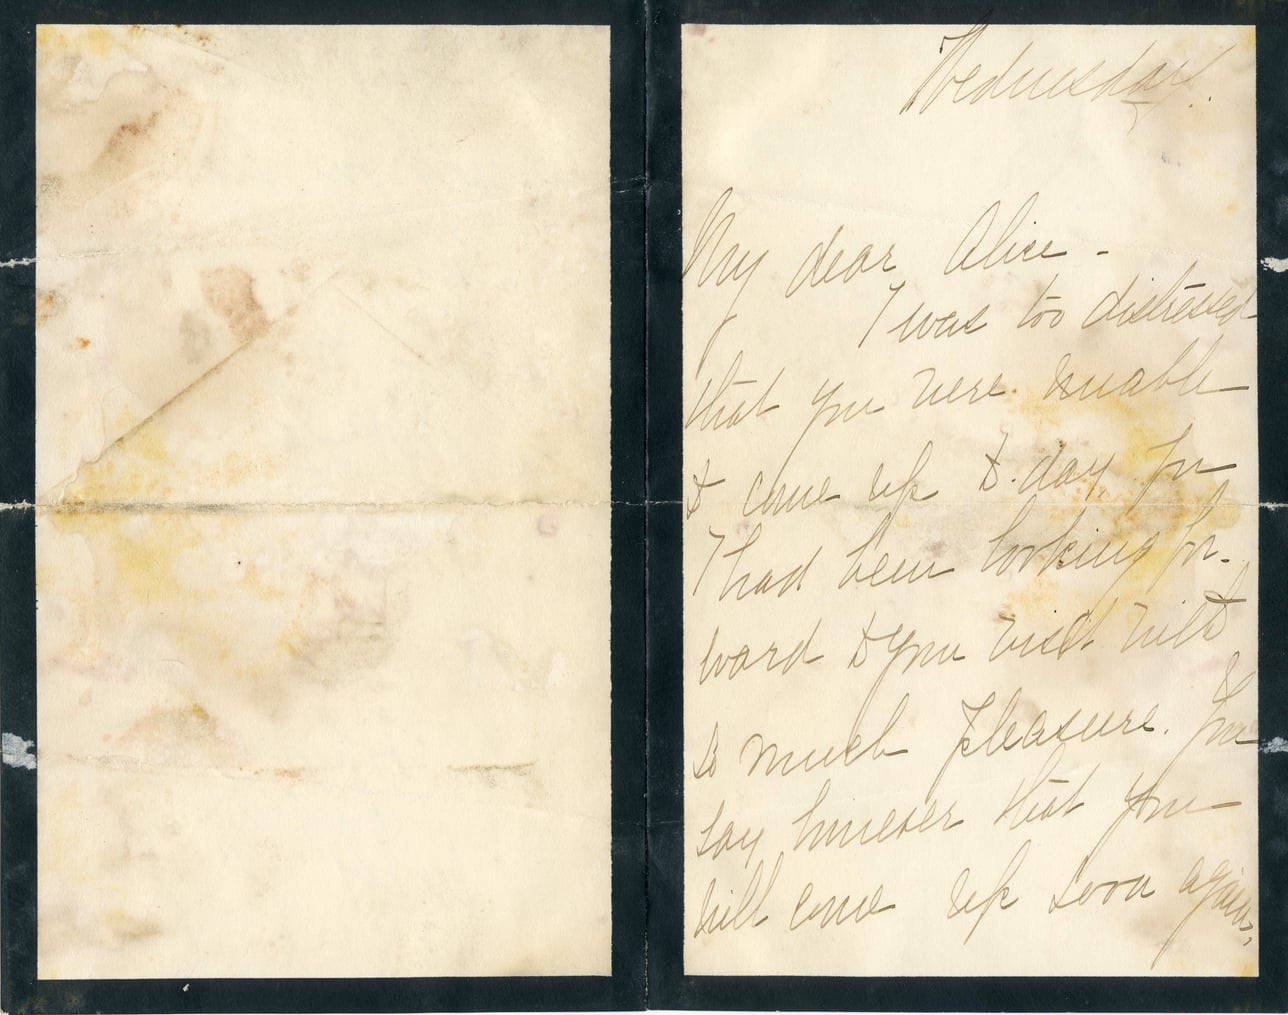 Wednesday.
My dear Alice -
I was too distressed
that you were unable
to come up to-day for
I had been looking for-
ward to your visit with
so much pleasure. You
say however that you
will come up soon again,